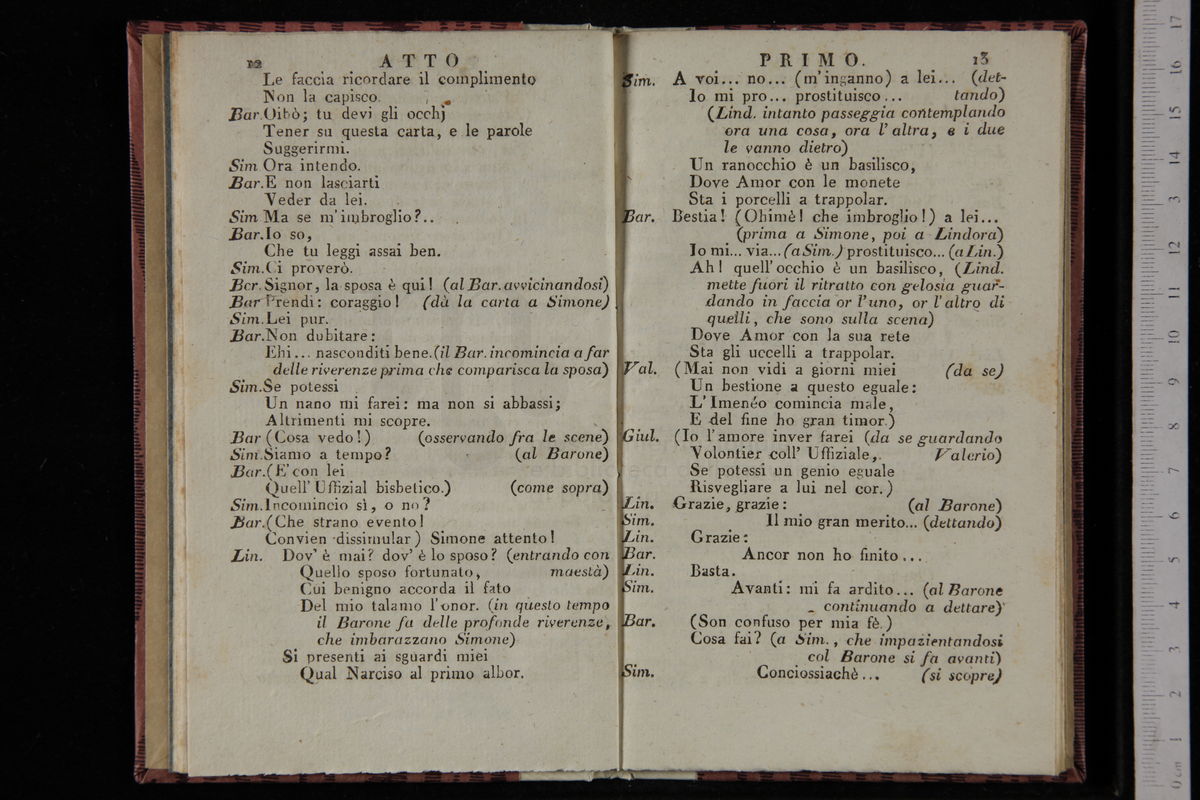 12 ATTO
Le faccia ricordare il complimento
Non la capisco.
Bar. Oibò; tu devi gli occhj
Tener su questa carta, e le parole
Suggerirmi.
Sim Ora intendo.
Bar. E non lasciarti
Veder da lei.
Sim Ma se m'imbroglio?..
Bar. Io so,
Che tu leggi assai ben.
Sim. Ci proverò.
Ber. Signor, la sposa è qui! (al Bar. avvicinandosi)
Bar Prendi: coraggio! (dà la carta a Simone)
Sim. Lei pur.
Bar. Non dubitare:
Ehi... nasconditi bene. (il Bar. incomincia a far
delle riverenze prima che comparisca la sposa)
Sim. Se potessi
Un nano mi farei: ma non si abbassi;
Altrimenti mi scopre.
Bar (Cosa vedo!) (osservando fra le scene)
Sim. Siamo a tempo? (al Barone)
Bar. (E' con lei
Quell' Uffizial bisbetico.) (come sopra)
Sim. Incomincio sì, o no?
Bar. (Che strano evento!
Convien dissimular) Simone attento!
Lin. Dov' è mai? dov' è lo sposo? (entrando con
Quello sposo fortunato, maestà)
Cui benigno accorda il fato
Del mio talamo l'onor. (in questo tempo
il Barone fa delle profonde riverenze,
che imbarazzano Simone)
Si presenti ai sguardi miei
Qual Narciso al primo albor.
PRIMO. 13
Sim. A voi... no... (m'inganno) a lei... (det-
Io mi pro... prostituisco... tando)
(Lind. intanto passeggia contemplando
ora una cosa, ora l'altra, e i due
le vanno dietro)
Un ranocchio è un basilisco,
Dove Amor con le monete
Sta i porcelli a trappolar.
Bar. Bestia! (Ohimè! che imbroglio!) a lei...
(prima a Simone, poi a Lindora)
Io mi... via... (a Sim.) prostituisco... (a Lin.)
Ah! quell' occhio è un basilisco, (Lind.
mette fuori il ritratto con gelosia guar-
dando in faccia or l'uno, or l'altro di
quelli, che sono sulla scena)
Dove Amor con la sua rete
Sta gli uccelli a trappolar.
Val. (Mai non vidi a giorni miei (da se)
Un bestione a questo eguale:
L'Imenéo comincia male,
E del fine ho gran timor.)
Giul. (Io l'amore inver farei (da se guardando
Volontier coll' Uffiziale, Valerio)
Se potessi un genio eguale
Risvegliare a lui nel cor.)
Lin. Grazie, grazie: (al Barone)
Sim. Il mio gran merito... (dettando)
Lin. Grazie:
Bar. Ancor non ho finito...
Lin. Basta.
Sim. Avanti: mi fa ardito... (al Barone
continuando a dettare)
Bar. (Son confuso per mia fè.)
Cosa fai? (a Sim., che impazientandosi
col Barone si fa avanti)
Sim. Conciossiachè... (si scopre)